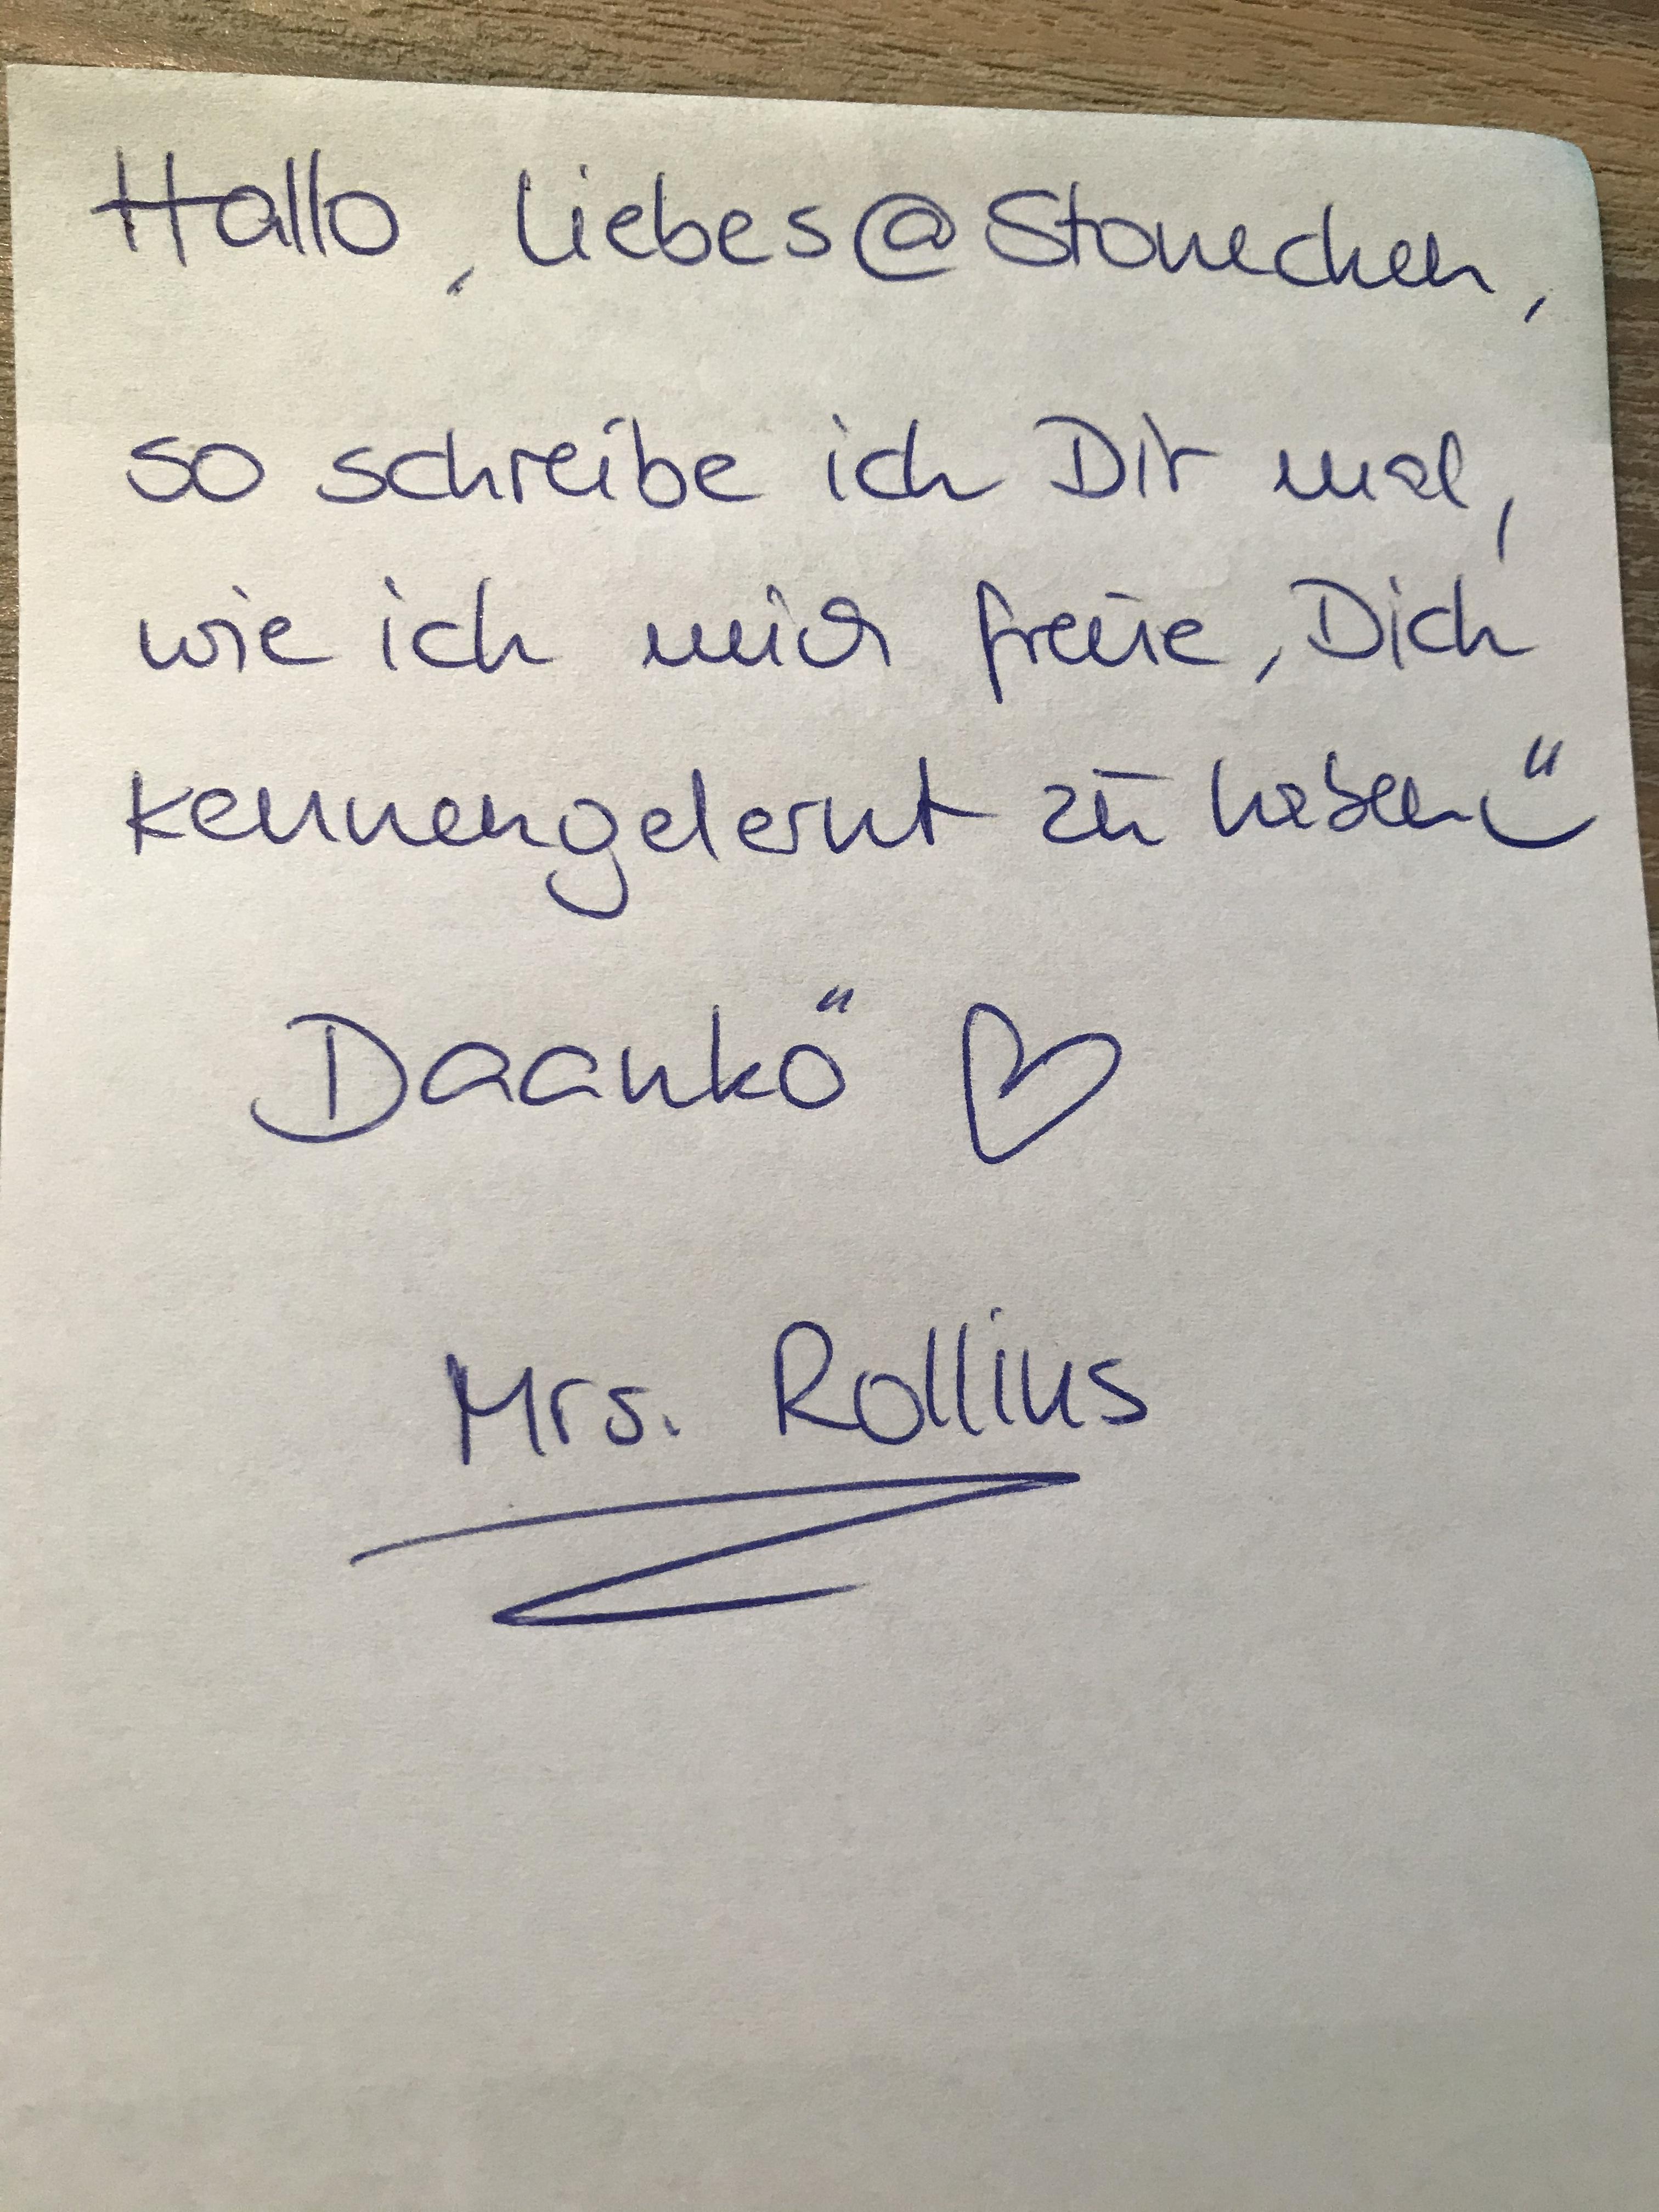 Hallo, liebes @Stonechen,
so schreibe ich Dir mal,
wie ich mich freue, Dich
kennengelernt zu haben
Daankö ♡
Mrs. Rollins